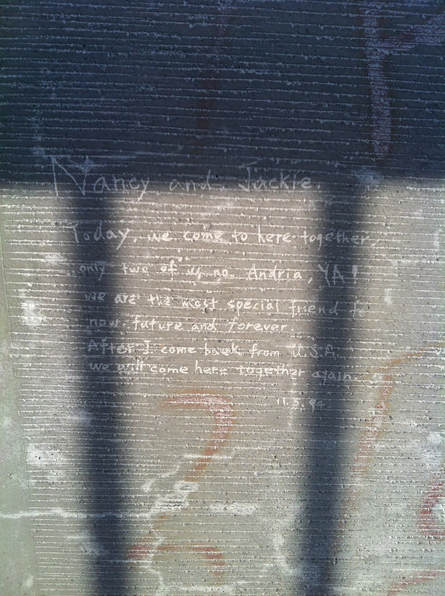 Nancy and Jackie.
Today, we come to here together
only two of us no Andria, YA!
we are the most special friend
now future and forever.
After I come back from U.S.A.
we will come here together again.
11.3.94